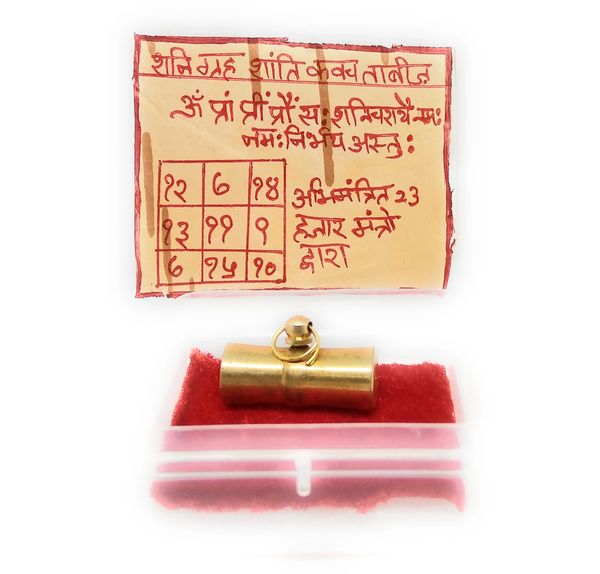 शनि ग्रह शांति कवच ताबीज़
ॐ प्रां प्रीं प्रौं सः शनिश्चराये नमः
नमः निर्भय अस्तुः
१२ ७ १४
१३ ११ ९
७ १५ १०
अभिमंत्रित 23
हजार मंत्रो
द्वारा